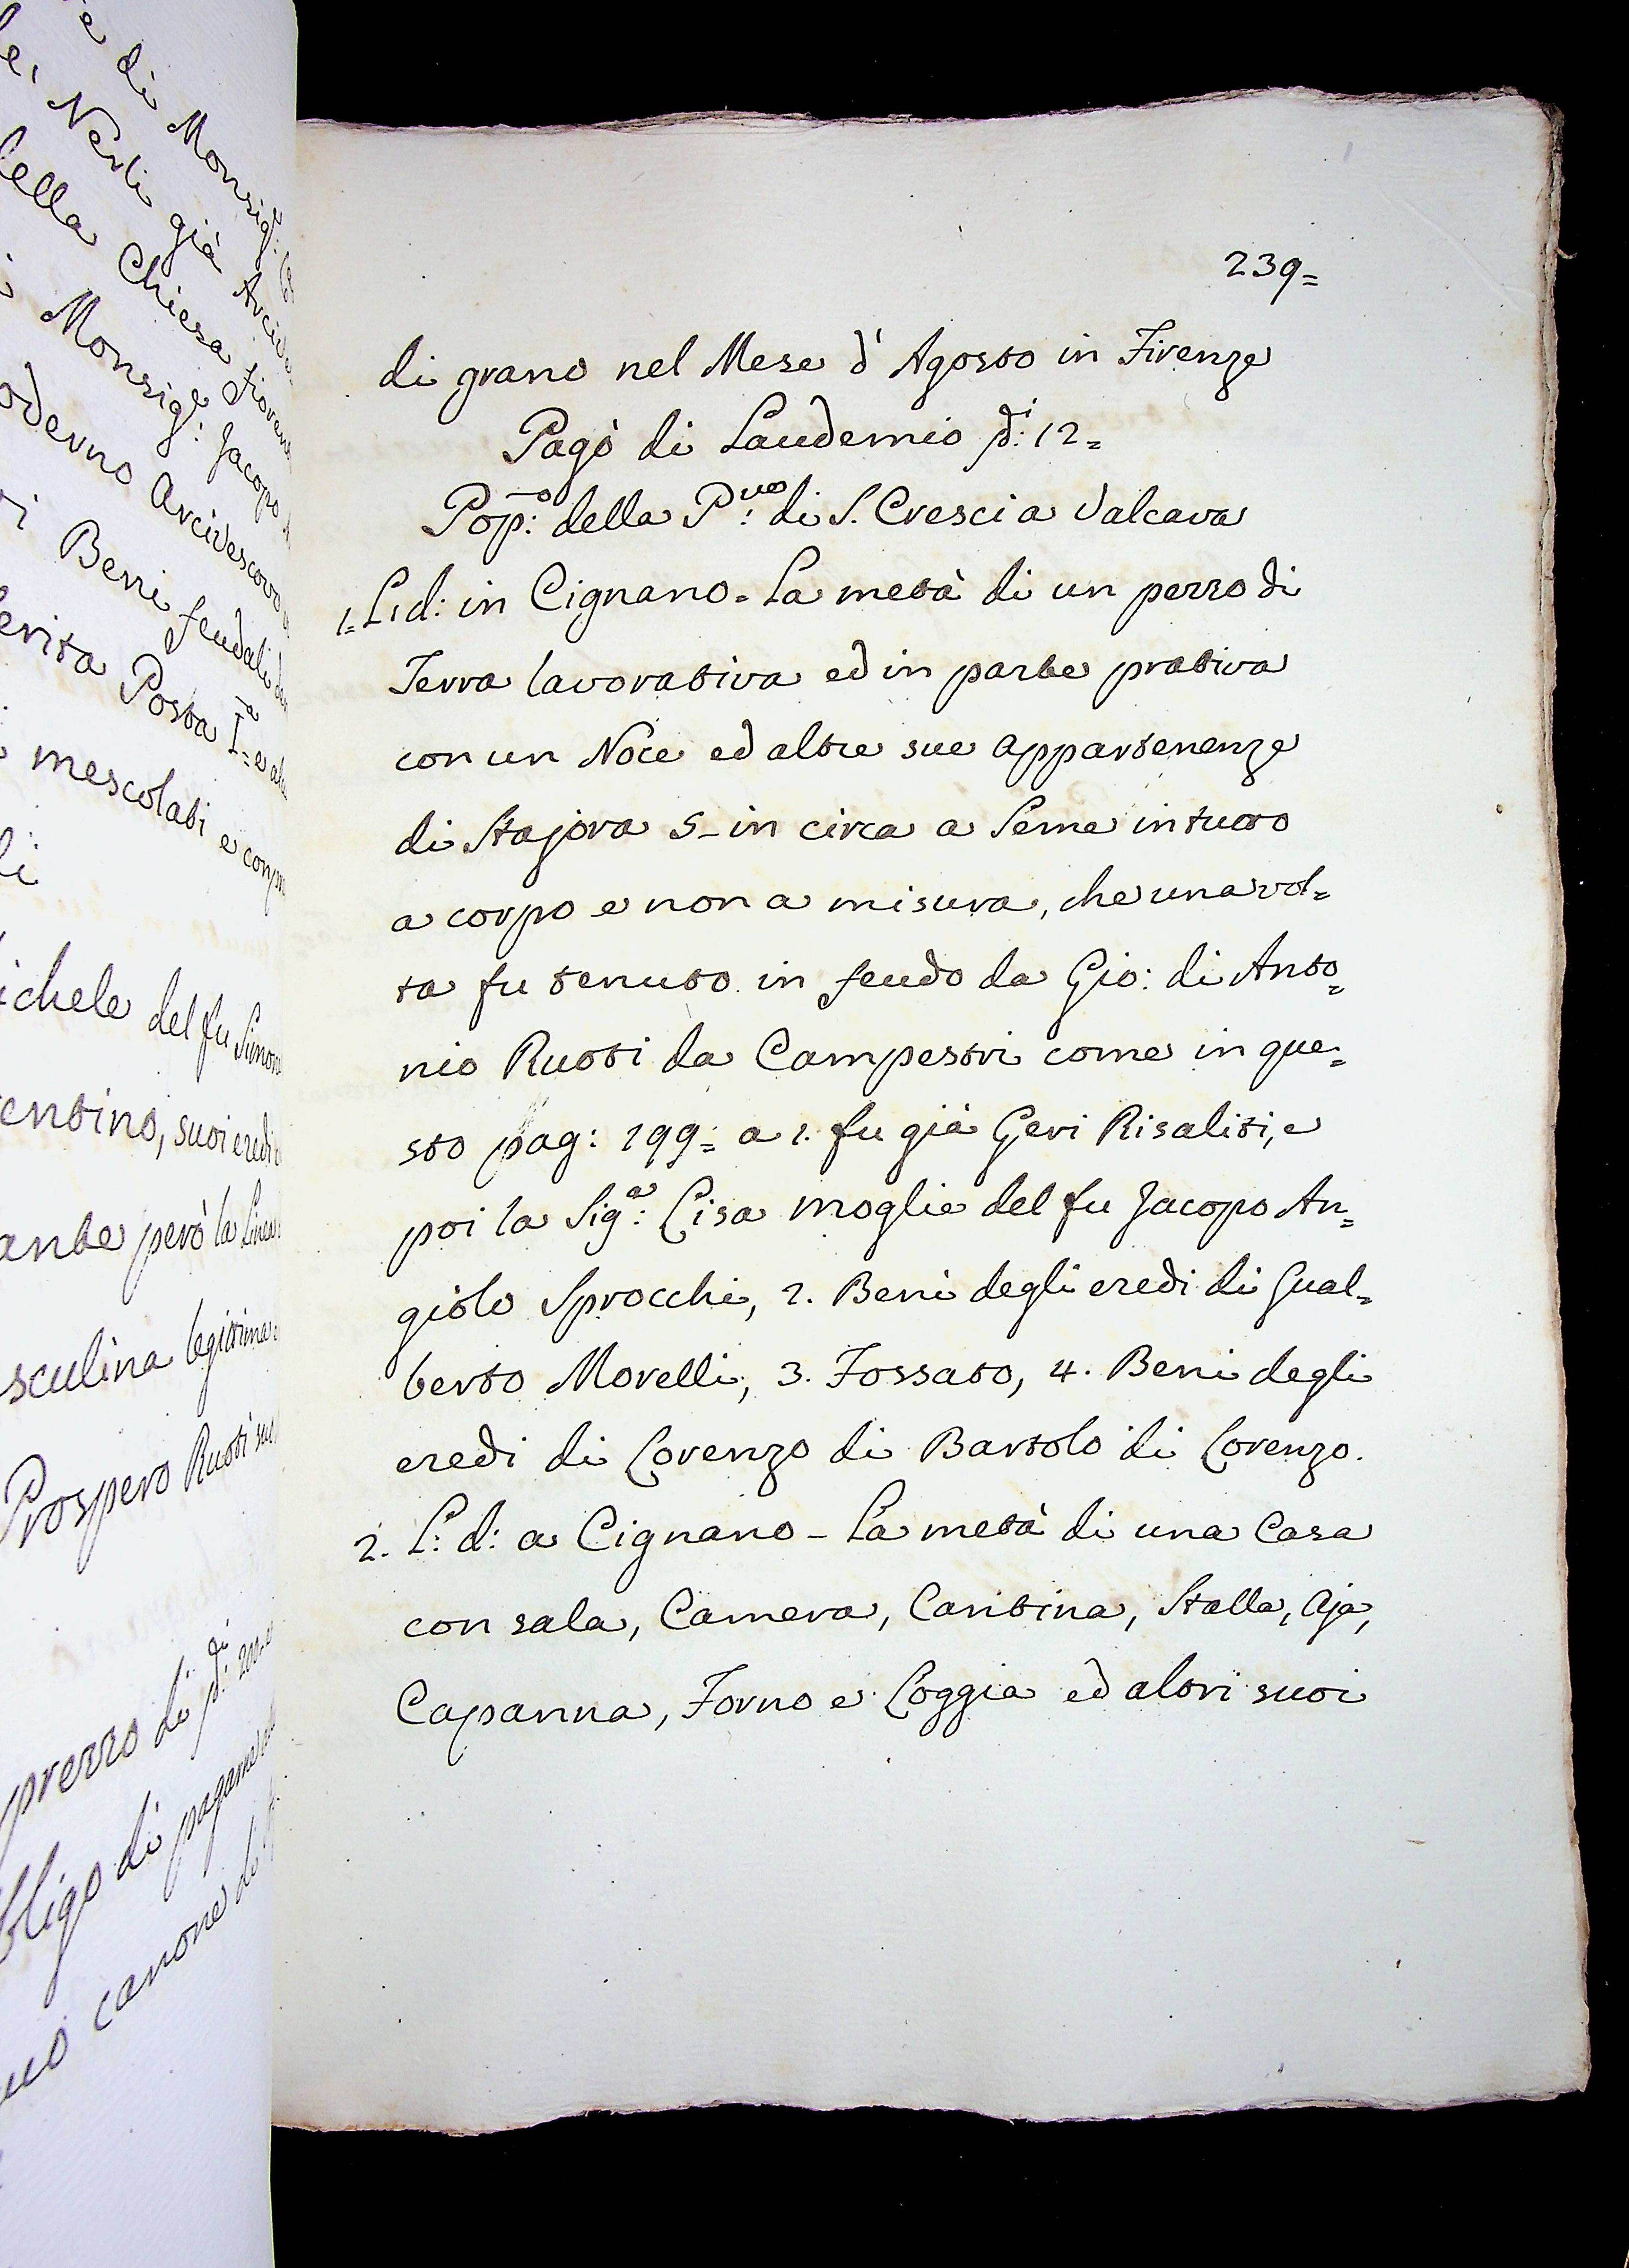 e di Monsig.e:
Nerli già Arcive
della Chiesa Fioren
Monsig.e: Jacopo
oderno Arcivescovo
i Beni feudali
erita Posta I.a= e
mescolati e
ichele del fu Simon
entino, suoi eredi
ante però la Linea
sculina legitima
Prospero Ruoti suo
prezzo di p.di: 200
bligo di pagarne
canone di
239=
di grano nel Mese d'Agosto in Firenze
Pagò di Laudemio p.di: 12=
Pop:o della P:ve di S. Cresci a Valcava
1= L: d: in Cignano. La metà di un pezzo di
Terra lavorativa ed in parte prativa
con un Noce ed altre sue appartenenze
di Stajora 5- in circa a Seme in tutto
a corpo e non a misura, che una vol=
ta fu tenuto in feudo da Gio: di Anto=
nio Ruoti da Campestri come in que=
sto pag: 199= a 1. fu già Geri Risaliti, e
poi la Sig.a: Lisa moglie del fu Jacopo An=
giolo Sprocchi, 2. Beni degli eredi di Gual=
berto Morelli, 3. Fossato, 4. Beni degli
eredi di Lorenzo di Bartolo di Lorenzo.
2. L: d: a Cignano - La metà di una Casa
con sala, Camera, Cantina, Stalla, Aja,
Capanna, Forno e Loggia ed altri suoi